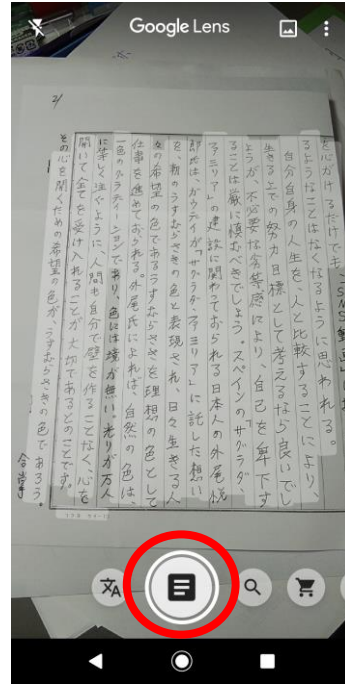 Google Lens
2/
を心がけるだけでも「SNS動画」
るようなことはなくなるように思われる。
自分自身の人生を、人と比較することにより、
生きる上での努力目標として考えるなら良いでし
ようが、不必要な劣等感により、自己を卑下す
ることは厳に慎むべきでしょう。スペインの「サグラダ、
ファミリア」の建設に関わっておられる日本人の外尾悦
郎氏は、ガウディが「サグラダファミリア」に託した想い
を、朝のうすむらさきの色と表現され、日々生きる人
々の希望の色であるうすむらさきを理想の色として
仕事を進めておられる。外尾氏によれば、自然の色は、
一色のグラデーションであり、色には境が無い。光りが万人
に等しく注ぐように、人間も自分で壁を作ることなく、心を
開いて全てを受け入れることが大切であるとのことです。
その心を開くための希望の色が、うすむらさきの色であろう。
合掌